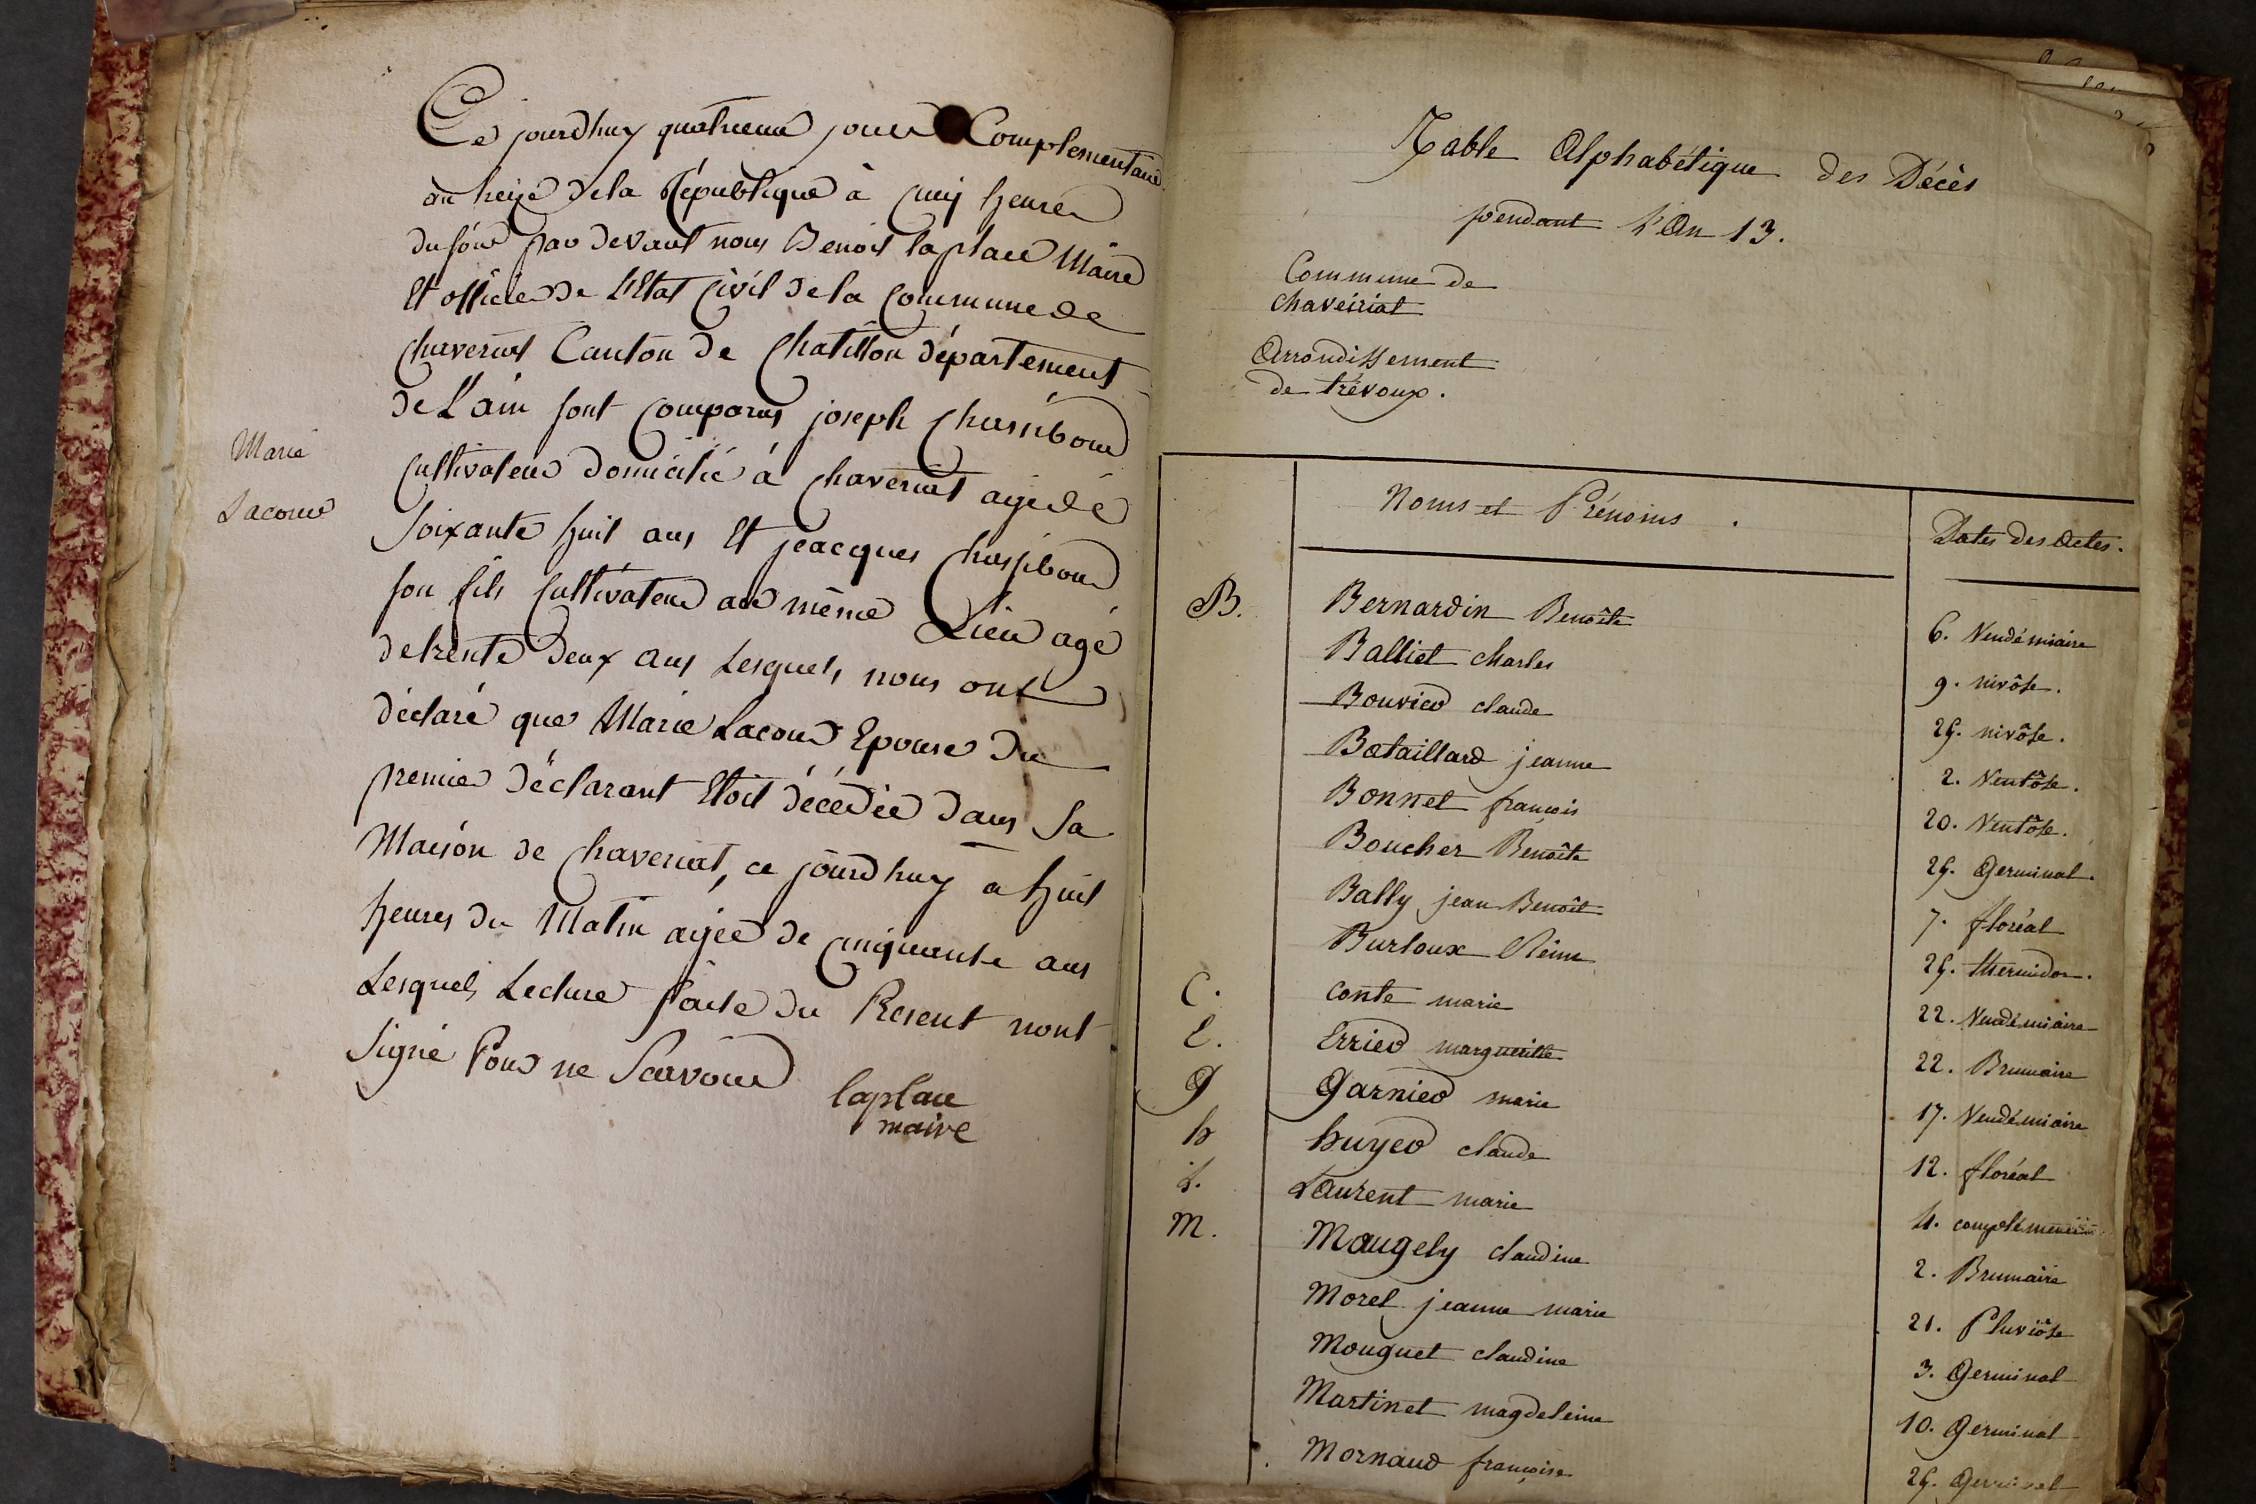 Marie
Lacour
Ce jourdhuy quatrieme jour Complementaire
an treize dela République à cinq heures
du soir par devant nous Benoit laplace Maire
Et officier de L'Etat Civil dela Commune de
Chaveriat Canton de Chatillon département
de L'ain sont comparus joseph Chassibout
Cultivateur domicilié à Chaveriat agé de
Soixante huit ans Et jeacques Chassibout
son fils Cultivateur au même Lieu agé
detrente deux ans Lesquels nous ont
déclaré que Marie Lacour Epouse du
premier déclarant Etoit décédée dans Sa
Maison de Chaveriat, ce jourdhuy a huit
heures du Matin agée de cinquante ans
Lesquels Lecture faite du Present nont
Signé Pour ne Scavoir
laplace
maire
Table Alphabétique des Décès
pendant L'An 13.
Commune de
chaveiriat
Arrondissement
de trévoux.
Noms et Prénoms . Dates des Actes.
B. Bernardin Benoîte 6. Vendémiaire
Balliet charles 9. nivôse.
Bouvier claude 29. nivôse.
Bataillard jeanne 2. Ventôse.
Bonnet françois 20. Ventôse.
Boucher Benoîte 29. Germinal.
Bally jean Benoît 7. floréal
Burloux Reine 29. thermidor.
C. Conte marie 22. Vendémiaire
E. Errier margueritte 22. Brumaire
G Garnier marie 17. Vendémiaire
h huyer claude 12. floréal
L. Laurent marie 4. complémentaire
M. Maugely claudine 2. Brumaire
Morel jeanne marie 21. Pluviôse
Mouguet claudine 3. Germinal
Martinet magdeleine 10. Germinal
Mornaud françoise 29. Germinal